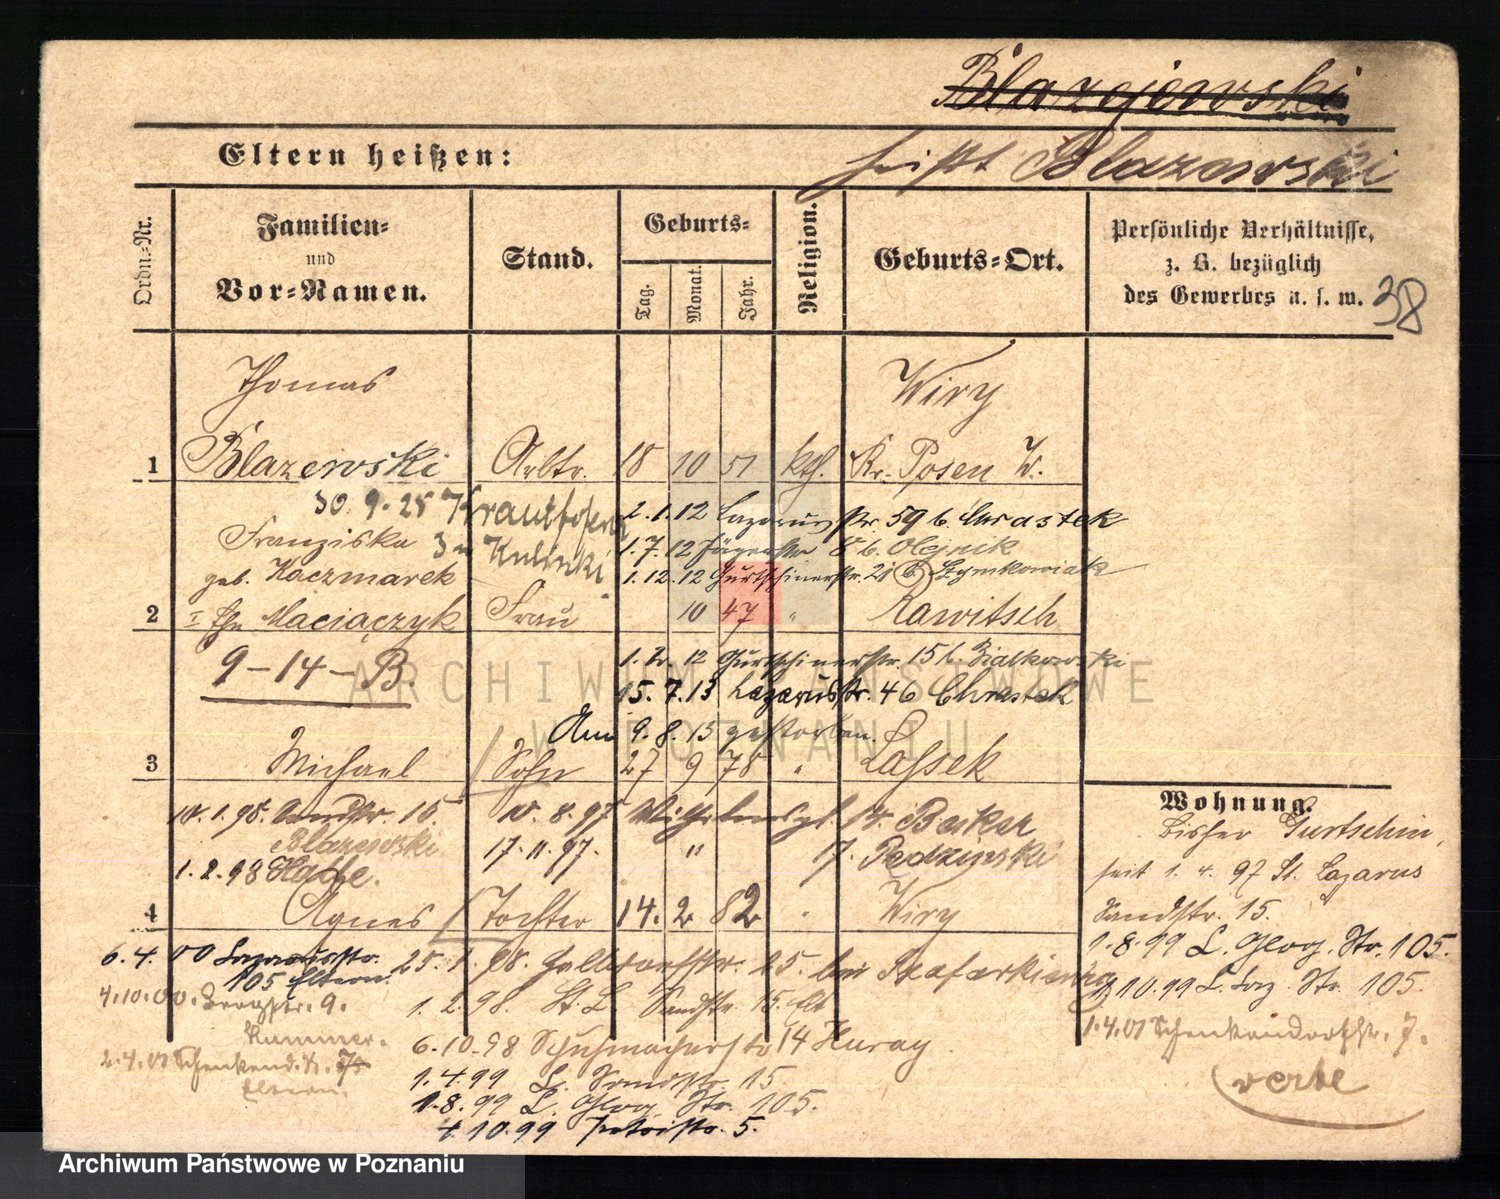 Blazejewski
Eltern heißen:
heißt Blazowski
Ordn.-Nr.
Familien-
und
Vor-Namen.
Stand.
Geburts-
Tag.
Monat.
Jahr.
Religion.
Geburts-Ort.
Persönliche Verhältnisse,
z. B. bezüglich
des Gewerbes u. s. w.
38
Thomas
Wiry
1 Blazewski Arbtr. 18 10 51 kth. Kr. Posen W.
30. 9. 28
2.1.12 Lazarus str 59 b. Chrastek
Franziska
1.7.12 Jägerstr 8 b. Olejnik
geb. Kaczmarek
1.12.12 Gurtschinerstr. 21 b. Szymkowiak
2 I Ehe Maciaczyk Frau 10 47 " Rawitsch
9-14-B
12 Gurtschinerstr. 15 b. Bialkowski
15.7.13 Lazarusstr. 46 Chrastek
Am 9.8.15 gestorben.
3 Michael Sohn 27 9 78 " Lassek
Wohnung.
bisher Gurtschin,
1.98. Sandstr. 15.
10.8.97 Wilhelmspl. 14. Becker
Blazewski
17.11.97. " 17.
seit 1.4.97 St. Lazarus
1.2.98
4 Agnes Tochter 14. 2 82 " Wiry
Sandstr. 15.
6.4.00 Lazarusstr.
105 Eltern.
25.1.98. 25. bei
1.8.99 L. Glog. Str. 105.
4.10.00. Bergstr. 9.
1.2.98. St. L Sandstr 15. Elt
10.99 L. Laz. Str. 105.
6.10.98 Schuhmacherstr 14 Huray
1.4.01 Schenkendorfstr. 7.
2.4.01 Schenkend. str. 7
Eltern.
1.4.99 L. Sandstr. 15.
1.8.99 L. Glog. Str. 105.
4.10.99 Petristr. 5.
verte
ARCHIWUM PAŃSTWOWE
W POZNANIU
Archiwum Państwowe w Poznaniu